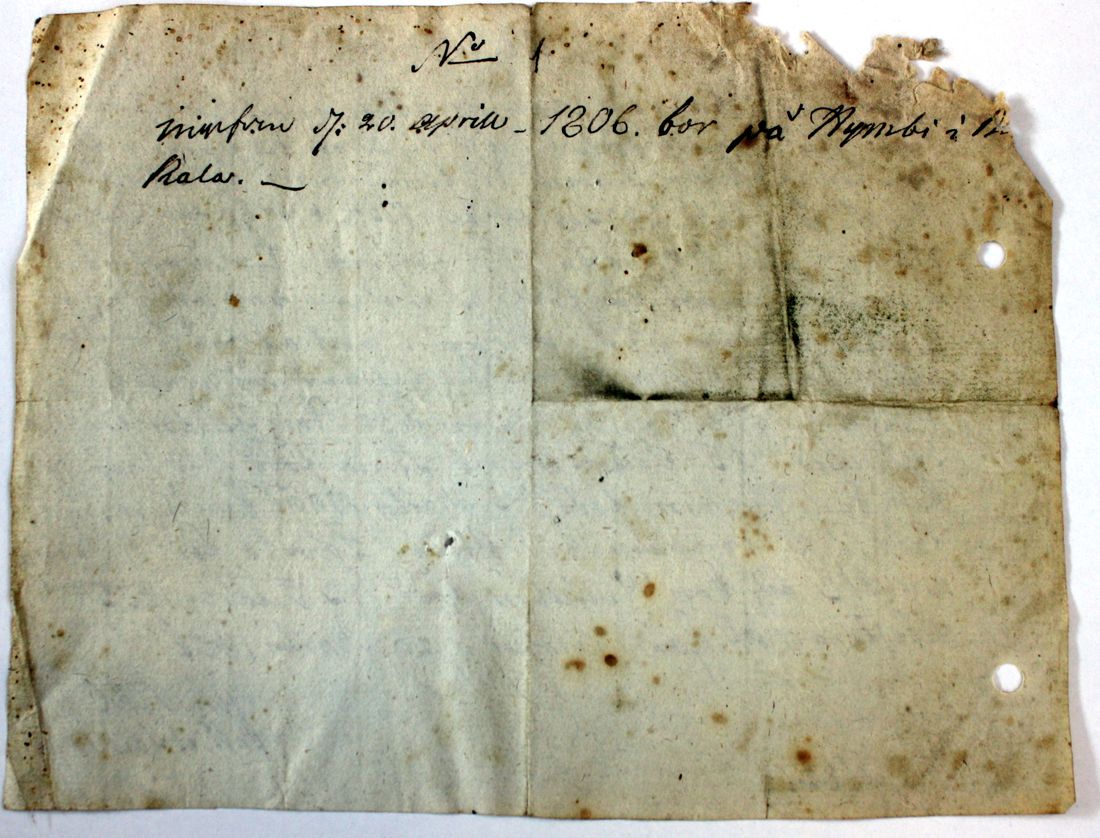 No 1
d: 20. aprill – 1806. bor på Nymbi i
Kala. –